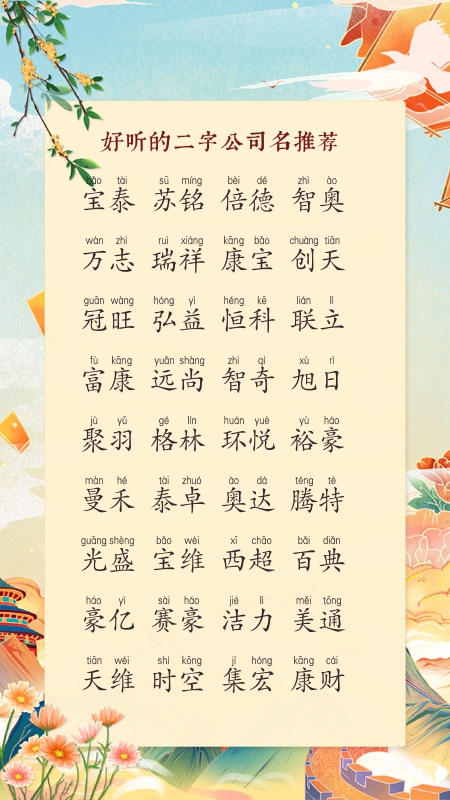 好听的二字公司名推荐
bǎo tài sū míng bèi dé zhì ào
宝泰 苏铭 倍德 智奥
wàn zhì ruì xiáng kāng bǎo chuàng tiān
万志 瑞祥 康宝 创天
guān wàng hóng yì héng kē lián lì
冠旺 弘益 恒科 联立
fù kāng yuǎn shàng zhì qí xù rì
富康 远尚 智奇 旭日
jù yǔ gé lín huán yuè yù háo
聚羽 格林 环悦 裕豪
màn hé tài zhuó ào dá téng tè
曼禾 泰卓 奥达 腾特
guāng shèng bǎo wéi xī chāo bǎi diǎn
光盛 宝维 西超 百典
háo yì sài háo jié lì měi tōng
豪亿 赛豪 洁力 美通
tiān wéi shí kōng jí hóng kāng cái
天维 时空 集宏 康财